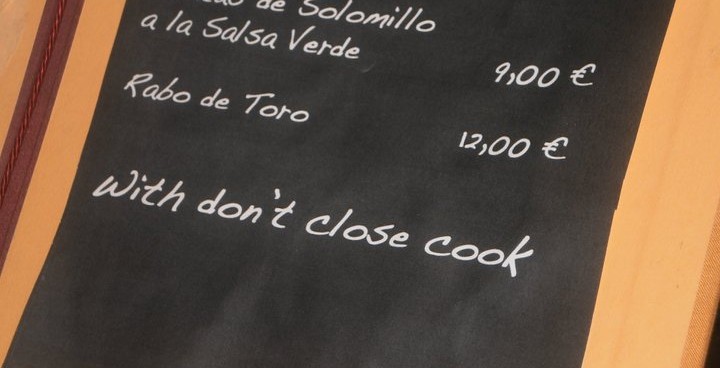 de Solomillo
a la Salsa Verde
9,00 €
Rabo de Toro
12,00 €
With don't close cook